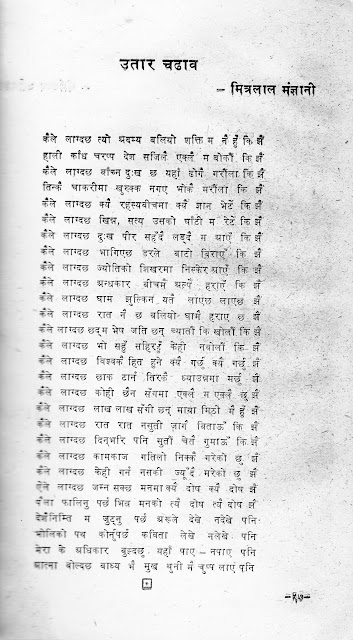 उतार चढाव
– मित्रलाल मंज्ञानी
कैले लाग्दछ त्यो श्रदम्य बलियो शक्ति म नै हुँ कि झैं
हाली काँध चरप्प देश सजिलै एक्लै म बोकौं कि झैं
कैले लाग्दछ बाँच्न दुःख छ यहाँ ढोंगै गरौंला कि झैं
तिन्कै चाकरीमा खुरुक्क नगए भोकै मरौंला कि झैं
कैले लाग्दछ क्यै रहस्यबीचमा क्यै ज्ञान भेटें कि झैं
कैले लाग्दछ खिन्न, सत्य उसको घाँटी म रेटें कि झैं
कैले लाग्दछ दुःख पीर सहँदै लड्दै म श्राएँ कि झैं
कैले लाग्दछ भागिएछ डरले बाटो बिराएँ कि झैं
कैले लाग्दछ ज्योतिको शिखरमा निस्केर श्राएँ कि झैं
कैले लाग्दछ श्रन्धकार बीचमै श्रल्पै हराएँ कि झैं
कैले लाग्दछ घाम झुल्किन यतै लाएछ लाएछ झैं
कैले लाग्दछ रात नै छ बलियो घामै हराए छ झैं
कैले लाग्दछ छद्म भेष जति छन् च्यातौं कि खोलौं कि झैं
कैले लाग्दछ भो सहूँ सहिरहूँ केही नबोलौं कि झैं
कैले लाग्दछ विश्वकै हित हुने क्यै गर्छु क्यै गर्छु झैं
कैले लाग्दछ छाक टार्न तिरकै ध्याउन्नमा मर्छु झैं
कैले लाग्दछ कोही छैन सँगमा एक्लै म एक्लै छु झैं
कैले लाग्दछ लाख लाख सँगी छन् माया मिठो मै हुँ झैं
कैले लाग्दछ रात रात नसुती जागै बिताऊँ कि झैं
कैले लाग्दछ दिनभरि पनि सुतौं चेतै गुमाऊँ कि झैं
कैले लाग्दछ कामकाज गतिलो निक्कै गरेको छु झैं
कैले लाग्दछ केही गर्न नसकी ज्यूँदै मरेको छु झैं
ऐले लाग्दछ जन्म सक्छ मनमा क्यै दोष क्यै दोष झैं
कैला फालिनु पर्छ भित्र मनको त्यै दोष त्यै दोष झैं
देशैनिम्ति म जुट्नु पर्छ श्ररूले देखे नदेखे पनि
भोलिको पथ कोर्नुपर्छ कविता लेखे नलेखे पनि
मेरा के श्रधिकार बुझ्दछु यहाँ पाए – नपाए पनि
श्रात्मा बोल्दछ बाध्य भै मुख थुनी मै चुप्प लाएँ पनि
–६५–